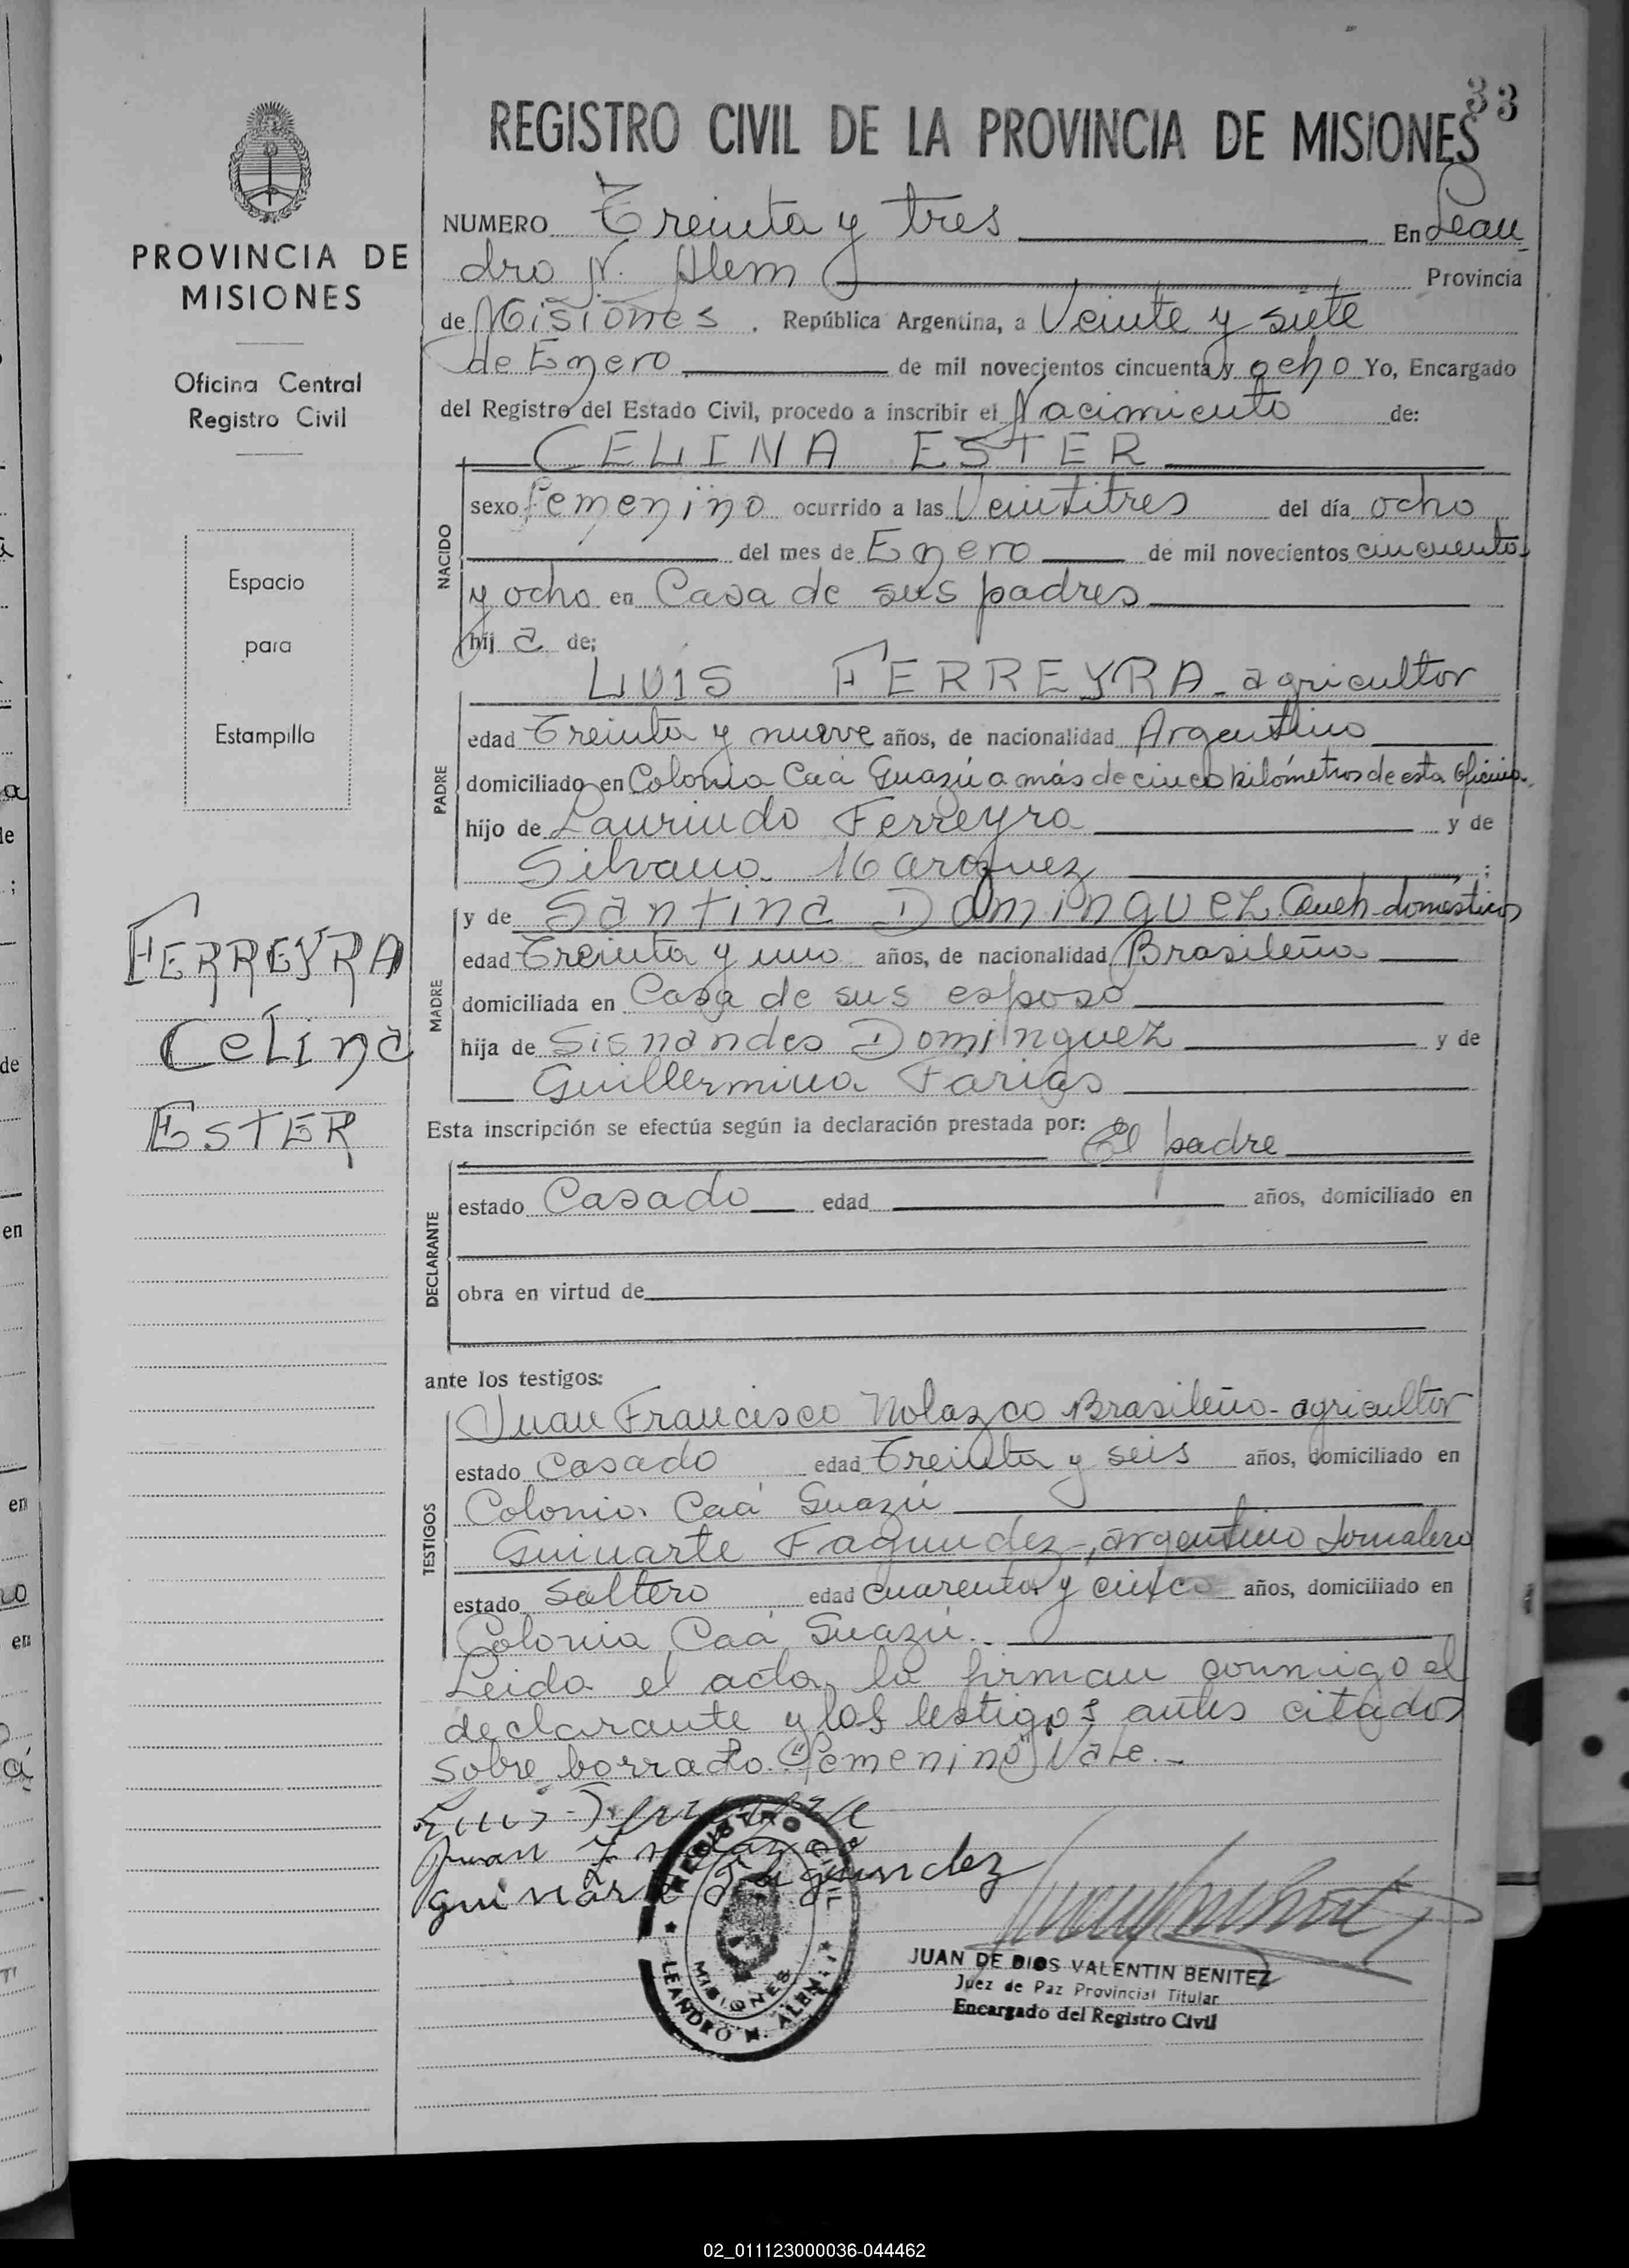 33
REGISTRO CIVIL DE LA PROVINCIA DE MISIONES
PROVINCIA DE
MISIONES
Oficina Central
Registro Civil
Espacio
para
Estampilla
FERREYRA
Celina
ESTER
NUMERO Treinta y tres En Lean
dro N. Alem Provincia
de Misiones. República Argentina, a Veinte y siete
de Enero de mil novecientos cincuenta y ocho Yo, Encargado
del Registro del Estado Civil, procedo a inscribir el Nacimiento de:
CELINA ESTER
NACIDO
sexo femenino ocurrido a las Veintitres del día ocho
del mes de Enero de mil novecientos cincuenta
y ocho en Casa de sus padres
hij a de:
LUIS FERREYRA - agricultor
PADRE
edad Treinta y nueve años, de nacionalidad Argentino
domiciliado en Colonia Caá Guazú a más de cinco kilómetros de esta Oficina.
hijo de Laurindo Ferreyra y de
Silvana Marquez ;
MADRE
y de Santina Dominguez Queh. domésticos
edad Treinta y uno años, de nacionalidad Brasileña
domiciliada en Casa de sus esposo
hija de Sisnandes Dominguez y de
Guillermina Farias
Esta inscripción se efectúa según la declaración prestada por: El padre
DECLARANTE
estado Casado edad años, domiciliado en
obra en virtud de
ante los testigos:
TESTIGOS
Juan Francisco Nolazco Brasileño - agricultor
estado Casado edad Treinta y seis años, domiciliado en
Colonia Caá Guazú
Guinarte Fagundez -, argentino Jornalero
estado Soltero edad cuarenta y cinco años, domiciliado en
Colonia Caá Guazú.
Leida el acta, la firman conmigo el
declarante y los testigos antes citados
sobre borrado. "femenino" Vale.-
Juan
guinarte Fagundez
REGISTRO CIVIL
MISIONES
LEANDRO N. ALEM
JUAN DE DIOS VALENTIN BENITEZ
Juez de Paz Provincial Titular
Encargado del Registro Civil
02_011123000036-044462